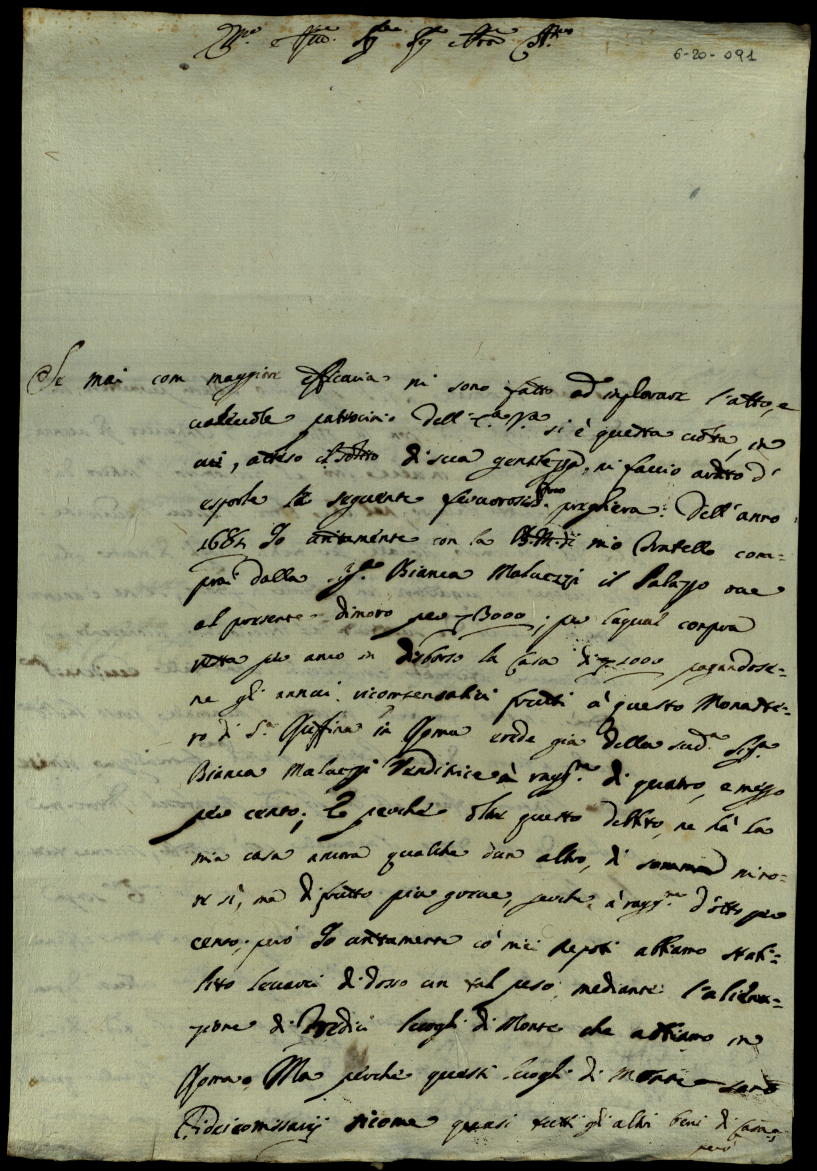 Ill.mo e Rev. Sig.re Sig.r P.ron Col.mo
6-20-091
Se mai con maggiore efficacia mi sono fatto ad implorare l'alto, e
valevole patrocinio dell' si è questa volta, in
cui, atteso il sotto di sua gentilezza, mi faccio ardito d'
esporle la seguente fervorosis.ma preghiera. Dell'anno
1684 Io unitamente con la B.M. di mio Fratello com=
prai dalla Sig.ra Bianca Maluezzi il Palazzo oue
al presente dimoro per 13000; per la qual compra
resta per anco in disborso la Casa di 5000 pagandose=
ne gli annui ricompensatiui frutti à questo Monaste=
ro di S.ta Ruffina in Roma erede già della sud.a Sig.ra
Bianca Maluezzi Venditrice à ragg.ne di quatro, e mezzo
per cento; E perche oltre questo debito, ne hà la
mia casa ancora qualche d'un altro, di somma mino=
re sì, ma di frutto più graue, perche à ragg.ne d'otto per
cento; però Io unitamente co' miei Nepoti abbiamo stabi=
lito leuarci di dosso un tal peso, mediante l'aliena=
zione di Tredici luoghi di Monte che abbiamo in
Roma. Ma perche questi luoghi di Monte sono
Fideicomissarij sicome quasi tutti gl'altri beni di Casa,
però